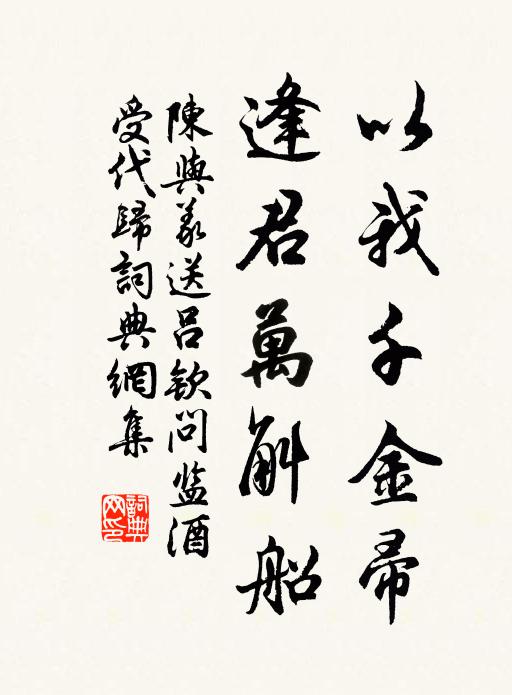 以我千金帚
逢君萬斛船
陳與義送呂欽問监酒
受代歸詞典網集
詞典
网印